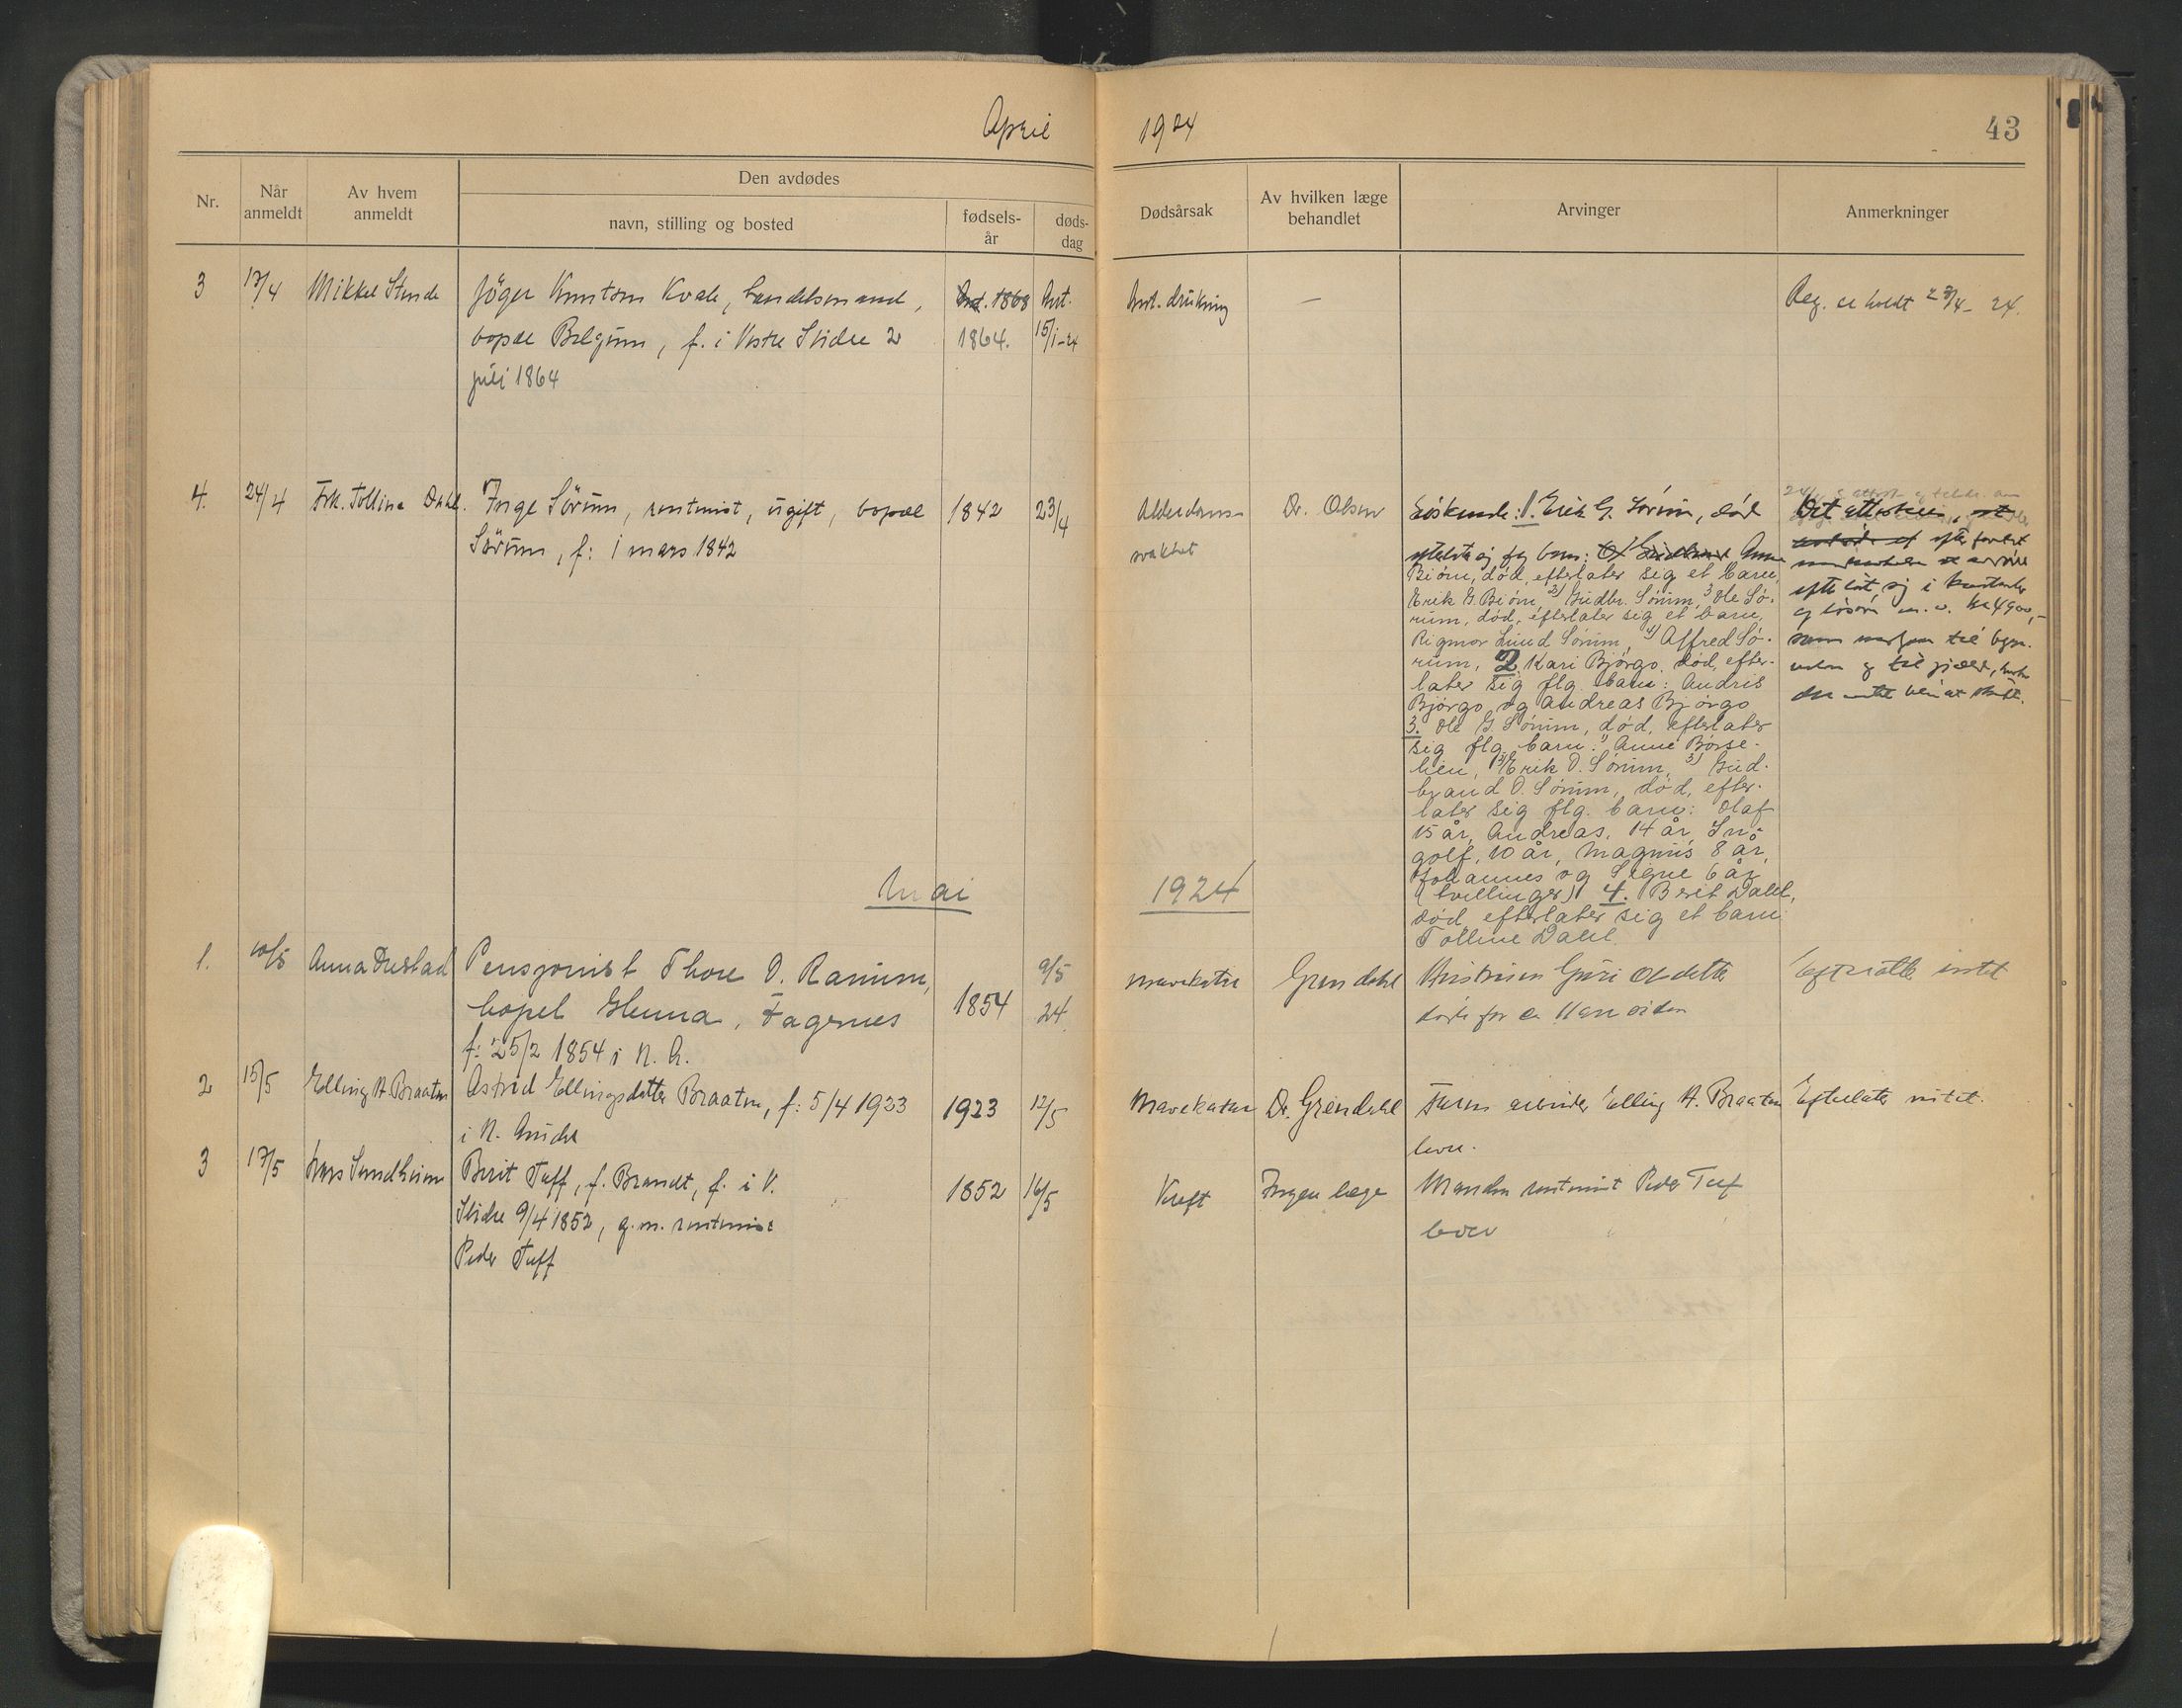 April 1924
43
Nr.
Når anmeldt
Av hvem anmeldt
Den avdødes
navn, stilling og bosted
fødsels-år
døds-dag
Dødsårsak
Av hvilken læge behandlet
Arvinger
Anmerkninger
3 17/4 Mikkel Stende
Jöger Knutsen Kvale, handelsmand,
bopæl Belgum, f. i Vestre Slidre 2
juli 1864
Ant. 1868
1864.
Ant.
15/1-24
Ant. drukning
—
Reg. er holdt 28/4-24.
4. 24/4 Frk. Tolline Dahl.
Inge Sörum, rentenist, ugift, bopæl
Sörum, f: 1 mars 1842
1842
23/4
Alderdoms-
svakhet
Dr. Olsen
Söskende: 1. Erik G. Sörum, död
efterlater sig flg barn: 1) Gudbrand Anne
Biörn, död, efterlater sig et barn,
Erik G. Biörn, 2) Gudbr. Sörum, 3 Ole Sö-
rum, död, efterlater sig et barn,
Rigmor Lund Sörum, 4) Alffred Sö-
rum, 2 Kari Bjørgo, död, efter-
later sig flg. barn: Andris
Bjørgo og Andreas Bjørgo
3. Ole G. Sörum, död, efterlater
sig flg. barn: 1) Anne Börse-
lien, 2) Erik O. Sörum, 3) Gud-
brand O. Sörum, död, efter-
later sig flg. barn: Olaf
15 år, Andreas, 14 år, Ing-
golf, 10 år, Magnus 8 år,
Johannes og Signe 6 år
(tvillinger) 4. Berit Dahl,
död, efterlater sig et barn:
Tolline Dahl.
Det attesteres,
efter
sig i kontanter
og lösöre kr 4900,-
som til
og til gjæld,
Mai 1924
1. 10/5 Anna Fuglad
Pensjonist Thore O. Ranum,
bopel Glenna, Fagernes
f: 25/2 1854 i N. A.
1854
9/5
24
Mavekatar
Grøndahl
Hustruen Guri Olsdatter
døde for ca. 11 år siden
Efterlater intet
2 15/5 Elling A. Braaten
Astrid Ellingsdatter Braaten, f: 5/4 1923
i N. Aurdal
1923
12/5
Mavekatar
Dr. Grøndahl
Faren arbeider Elling A. Braaten
lever.
Efterlater intet.
3 17/5 Lars Sundheim
Berit Tuff, f. Brandt, f. i V.
Slidre 9/4 1852, g.m. rentenist
Peder Tuff
1852
16/5
Kreft
Ingen læge
Manden rentenist Peder Tuff
lever